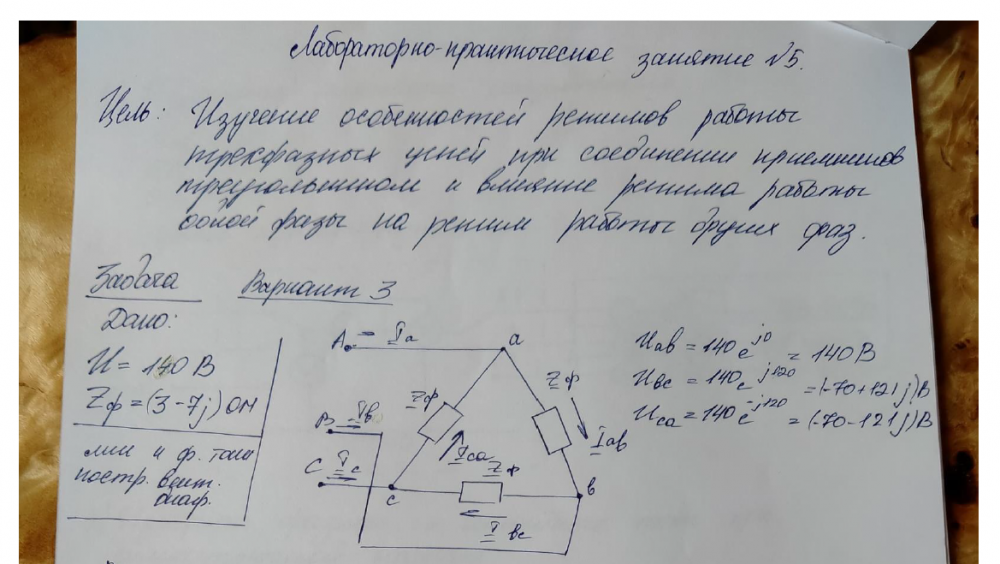 Лабораторно-практическое занятие №5.
Цель: Изучение особенностей режимов работы
трехфазных цепей при соединении приемников
треугольником и влияние режима работы
одной фазы на режим работы других фаз.
Задача Вариант 3
Дано:
U = 140 В
Zф = (3 - 7j) Ом
лин и ф. токи
постр. вект.
диаф.
A Ia a
Zф Zф
B Iв
Ica Iab
C Ic
c Zф в
I вс
Uab = 140 e^j0 = 140 В
Uвс = 140 e^j120 = (-70+121j) В
Uca = 140 e^-j120 = (-70-121j) В